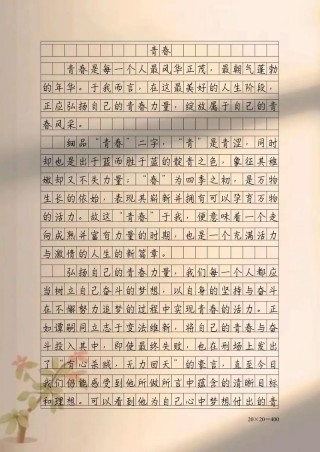 青春
青春是每一个人最风华正茂，最朝气蓬勃
的年华。于我而言，在这最美好的人生阶段，
正应弘扬自己的青春力量，绽放属于自己的青
春风采。
细品“青春”二字，“青”是青涩，同时
却也是出于蓝而胜于蓝的靛青之色，象征其稚
嫩却又不失力量；“春”为四季之初。是万物
生长的依始，表现其崭新并拥有可以孕育万物
的活力。故这“青春”于我，便意味着一个走
向成熟并富有力量的时期，也是一个充满活力
与激情的人生的新篇章。
弘扬自己的青春力量，我们每一个人都应
当树立自己奋斗的梦想，以自身的坚持与奋斗
在不懈努力追梦的过程中实现青春的活力。正
如谭嗣同立志于变法维新，将自己的青春与奋
斗投入其中，即使最终失败，也在刑场上发出
了“有心杀贼，无力回天”的豪言，直至今日
我们仍能感受到他所做所言中蕴含的清晰目标
和理想。可以看到他为自己心中梦想付出的青
20×20=400